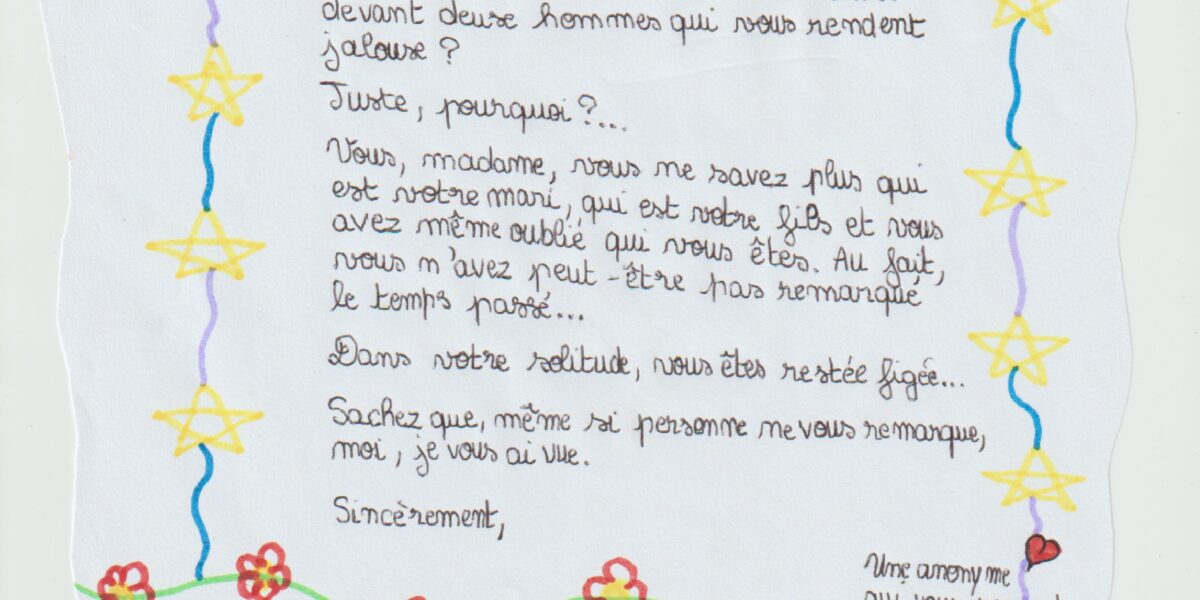 devant deux hommes qui vous rendent
jalouse ?
Juste, pourquoi ?...
Vous, madame, vous ne savez plus qui
est votre mari, qui est votre fils et vous
avez même oublié qui vous êtes. Au fait,
vous n'avez peut-être pas remarqué
le temps passé...
Dans votre solitude, vous êtes restée figée...
Sachez que, même si personne ne vous remarque,
moi, je vous ai vue.
Sincèrement,
Une anonyme
qui vous